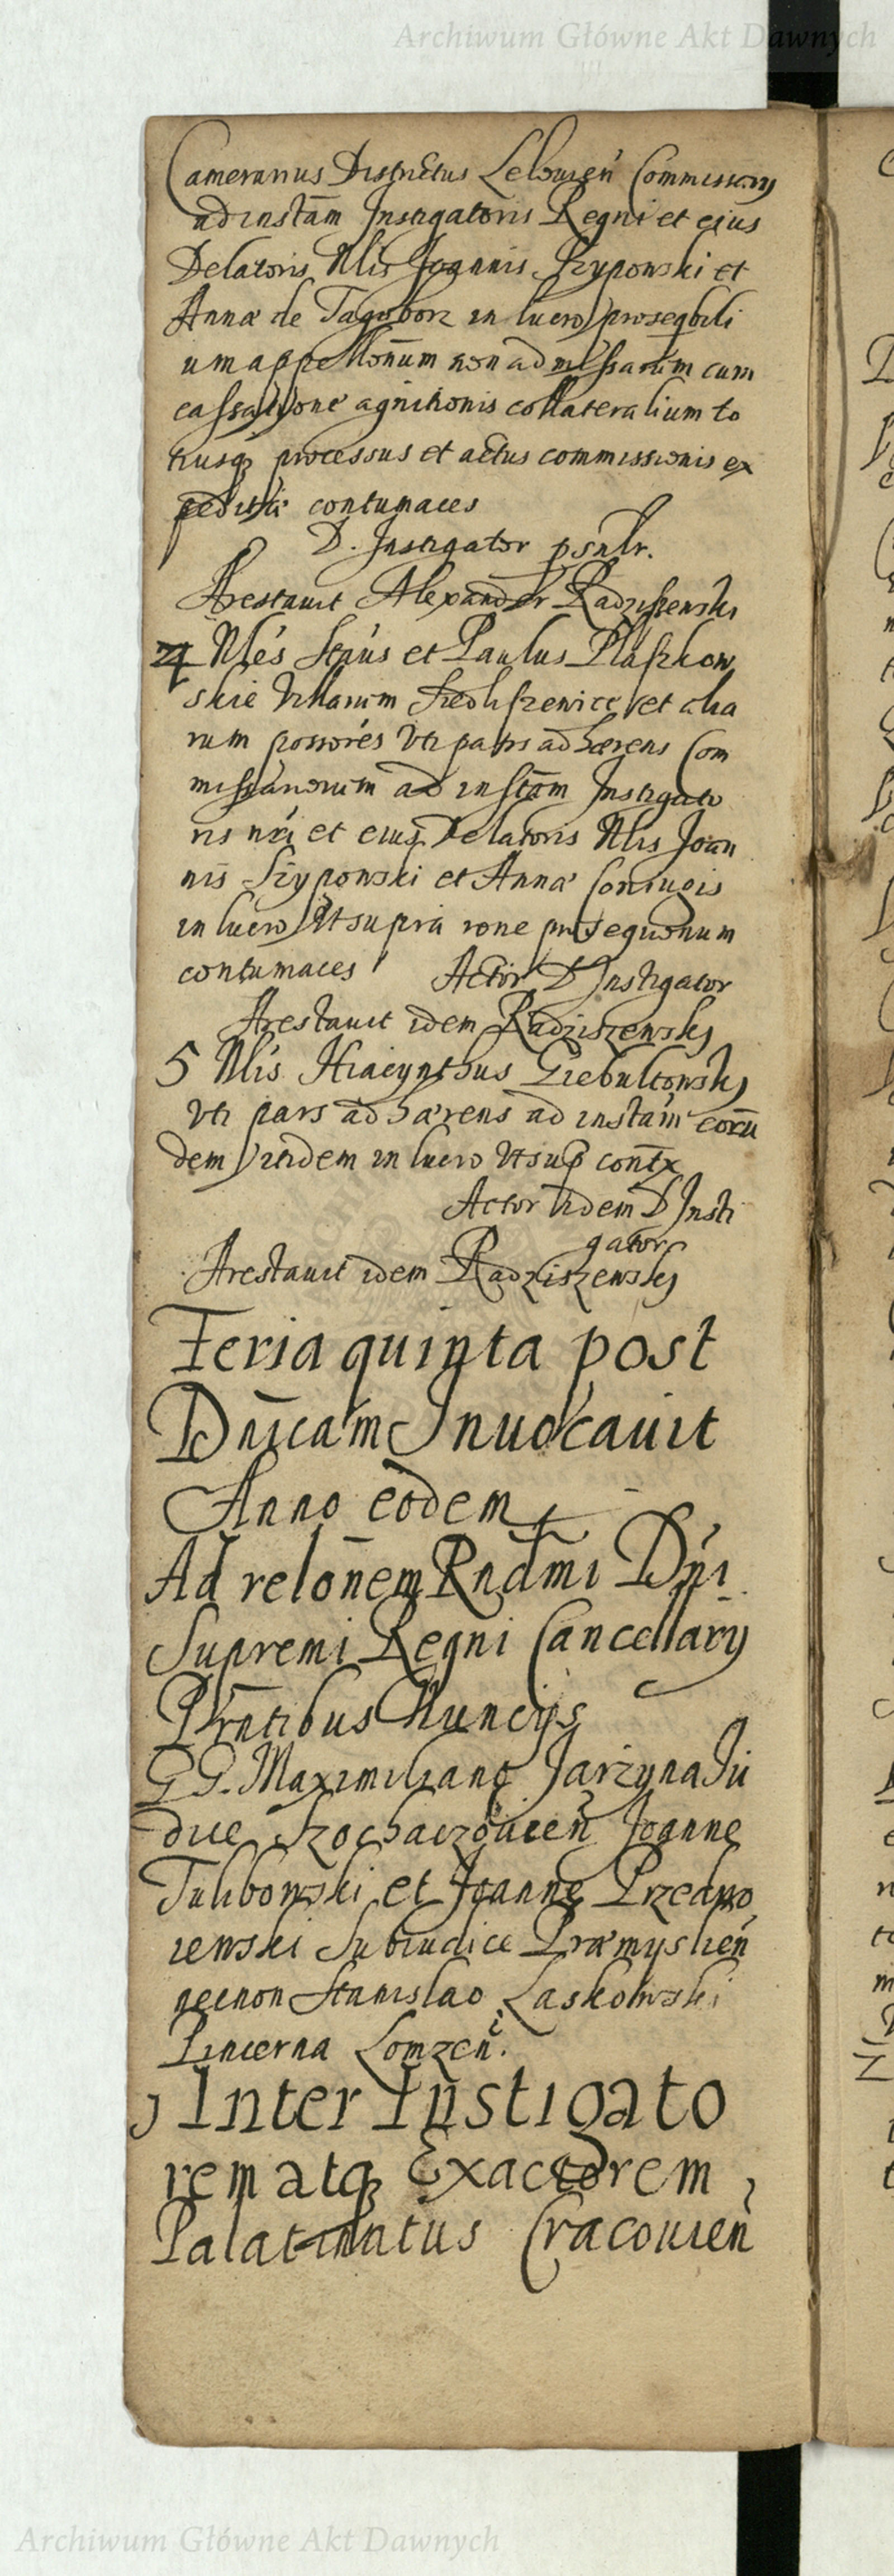 Archiwum Główne Akt Dawnych
Camerarius Districtus Leloviεń Commissarij
ad instam̄ Instigatoris Regni et eius
Delatoris Nlis Joannis Szypowski et
Annæ de Tagoborz in lucro
um appellōnum non admissarum cum
cassatione agnitionis collateralium to
tiusq processus et actus commissionis ex
contumaces
D. Instigator psnlr.
Arestavit Alexander Radziszewski
4 Nles et Paulus Plaszkow
skie Villarum et alia
rum possores Vti pars adhærens Com
missariorum ad instam̄ Instigato
ris nri et eius Delatoris Nlis Joan
nis Szypowski et Annæ Coniugis
in lucro Vt supra rone prosequōnum
contumaces Actor D Instigator
Arestavit idem Radziszewskj
5 Nlis Hiacynthus Giebultowskj
Vti pars adhærens ad instam̄ eorū
dem itidem in lucro Vt sup contx
Actor itidem D Insti
gator
Arestavit idem Radziszewskj
Feria quinta post
Dnīcam Invocavit
Anno eodem
Ad relonēm Rndmi Dni
Supremi Regni Cancellarij
Prntibus Nuncijs
GG. Maximiliano Jarzyna Iu
dice Sochaczovień Joanne
Tulibowski et Joanne
Subiudice Præmyslień
necnon Stanislao Laskowski
Pincerna Lomzeń.
1 Inter Instigato
rem atq Exactorem
Palatinatus Cracovień
Archiwum Główne Akt Dawnych